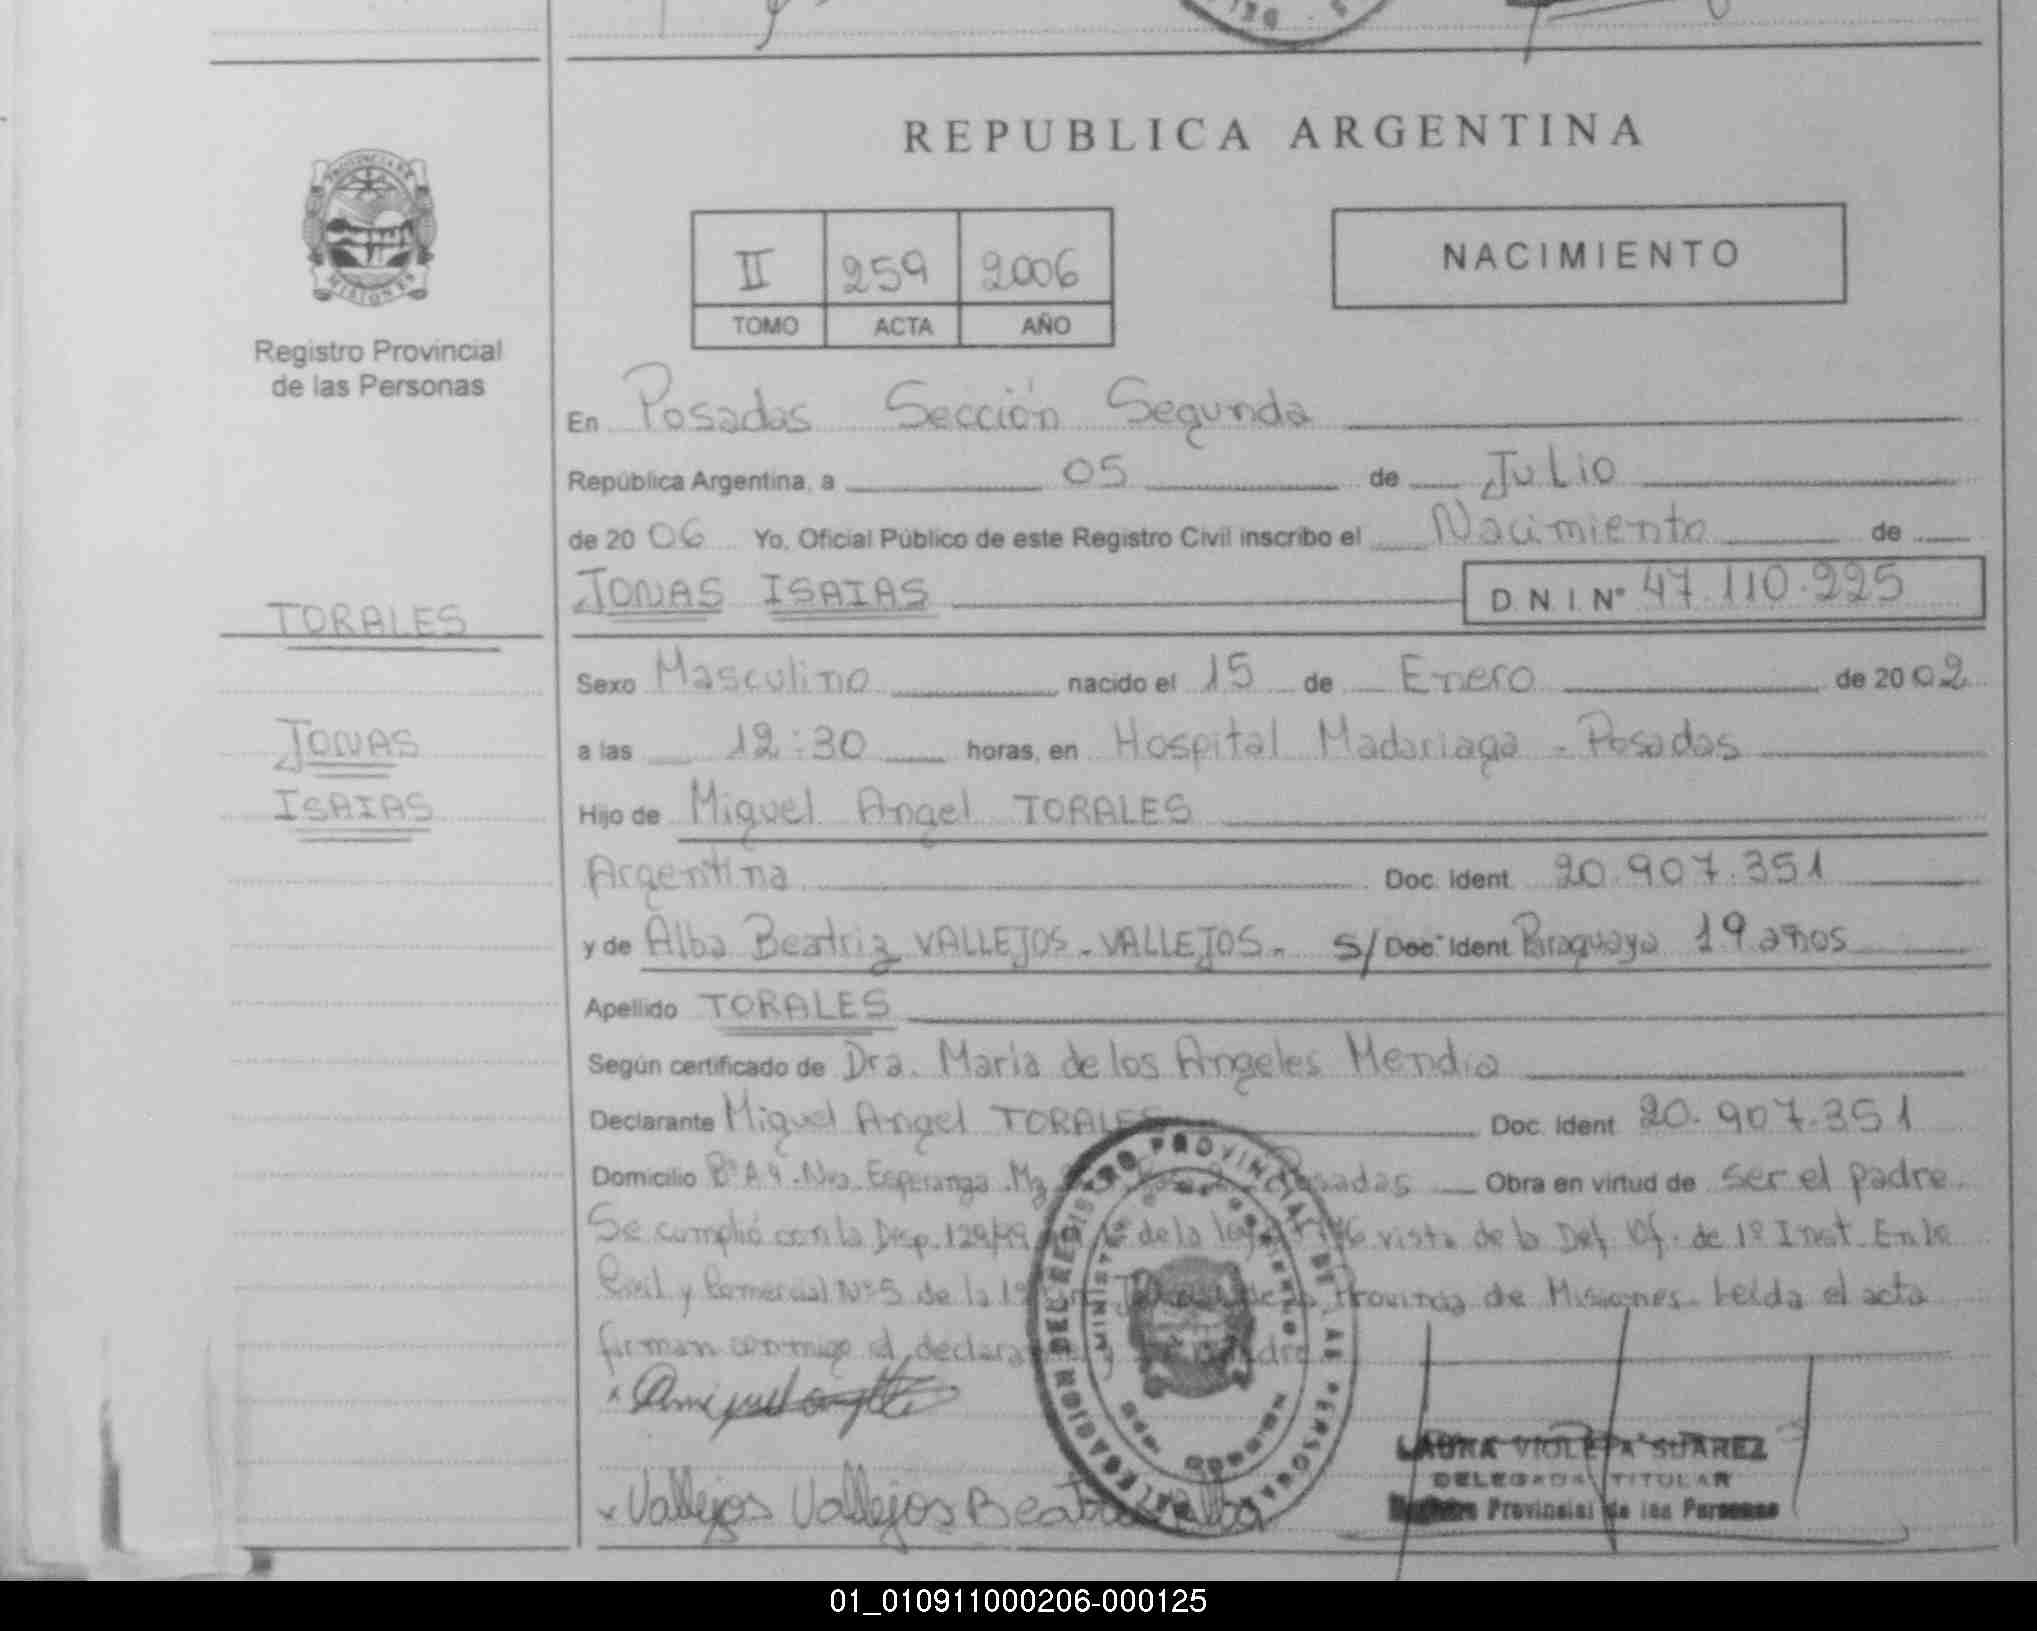 REPUBLICA ARGENTINA
PROVINCIA DE MISIONES
Registro Provincial
de las Personas
II 259 2006
TOMO ACTA AÑO
NACIMIENTO
En Posadas Sección Segunda
República Argentina, a 05 de Julio
de 20 06 Yo, Oficial Público de este Registro Civil inscribo el Nacimiento de
JONAS ISAIAS D.N.I. N° 47.110.225
TORALES
JONAS
ISAIAS
Sexo Masculino nacido el 15 de Enero de 20 02
a las 12:30 horas, en Hospital Madariaga - Posadas
Hijo de Miguel Angel TORALES
Argentina Doc. Ident. 20.907.351
y de Alba Beatriz VALLEJOS - VALLEJOS - S/ Doc. Ident Paraguaya 19 años
Apellido TORALES
Según certificado de Dra. Maria de los Angeles Mendia
Declarante Miguel Angel TORALES Doc. Ident 20.907.351
Domicilio Bº A4 - Nva. Esperanza - Mz Posadas Obra en virtud de ser el padre
Se cumplió con la Disp. 129/99 de la ley vista de la Def. Of. de 1º Inst. En lo
Civil y Comercial Nº 5 de la 1º de la Provincia de Misiones. Leida el acta
firman conmigo el declarante y
Vallejos Vallejos Beatriz Alba
DELEGACION DEL REGISTRO PROVINCIAL DE LAS PERSONAS
MINISTERIO DE GOBIERNO
LAURA VIOLETA SUAREZ
DELEGADA TITULAR
Registro Provincial de las Personas
01_010911000206-000125